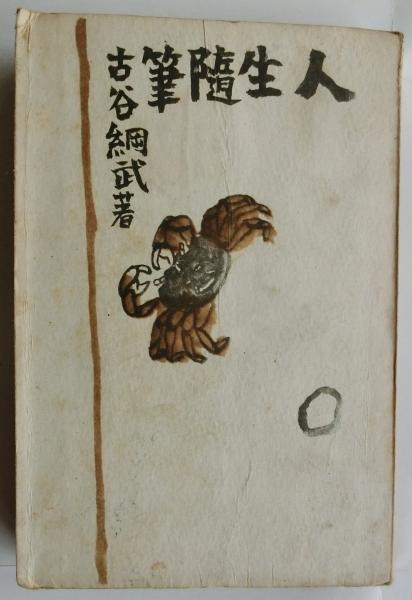 人生隨筆
古谷綱武著